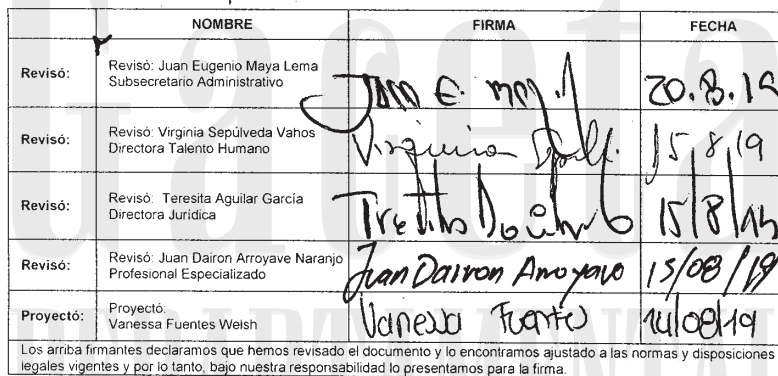 NOMBRE FIRMA FECHA
Revisó: Revisó: Juan Eugenio Maya Lema
Subsecretario Administrativo
Juan E. May. 20.8.19
Revisó: Revisó: Virginia Sepúlveda Vahos
Directora Talento Humano
Virginia 15/8/19
Revisó: Revisó: Teresita Aguilar García
Directora Jurídica
15/8/19
Revisó: Revisó: Juan Dairon Arroyave Naranjo
Profesional Especializado
Juan Dairon Arroyave 15/08/19
Proyectó: Proyectó:
Vanessa Fuentes Welsh
Vanessa Fuentes 14/08/19
Los arriba firmantes declaramos que hemos revisado el documento y lo encontramos ajustado a las normas y disposiciones
legales vigentes y por lo tanto, bajo nuestra responsabilidad lo presentamos para la firma.
Gaceta
DEPARTAMENTAL